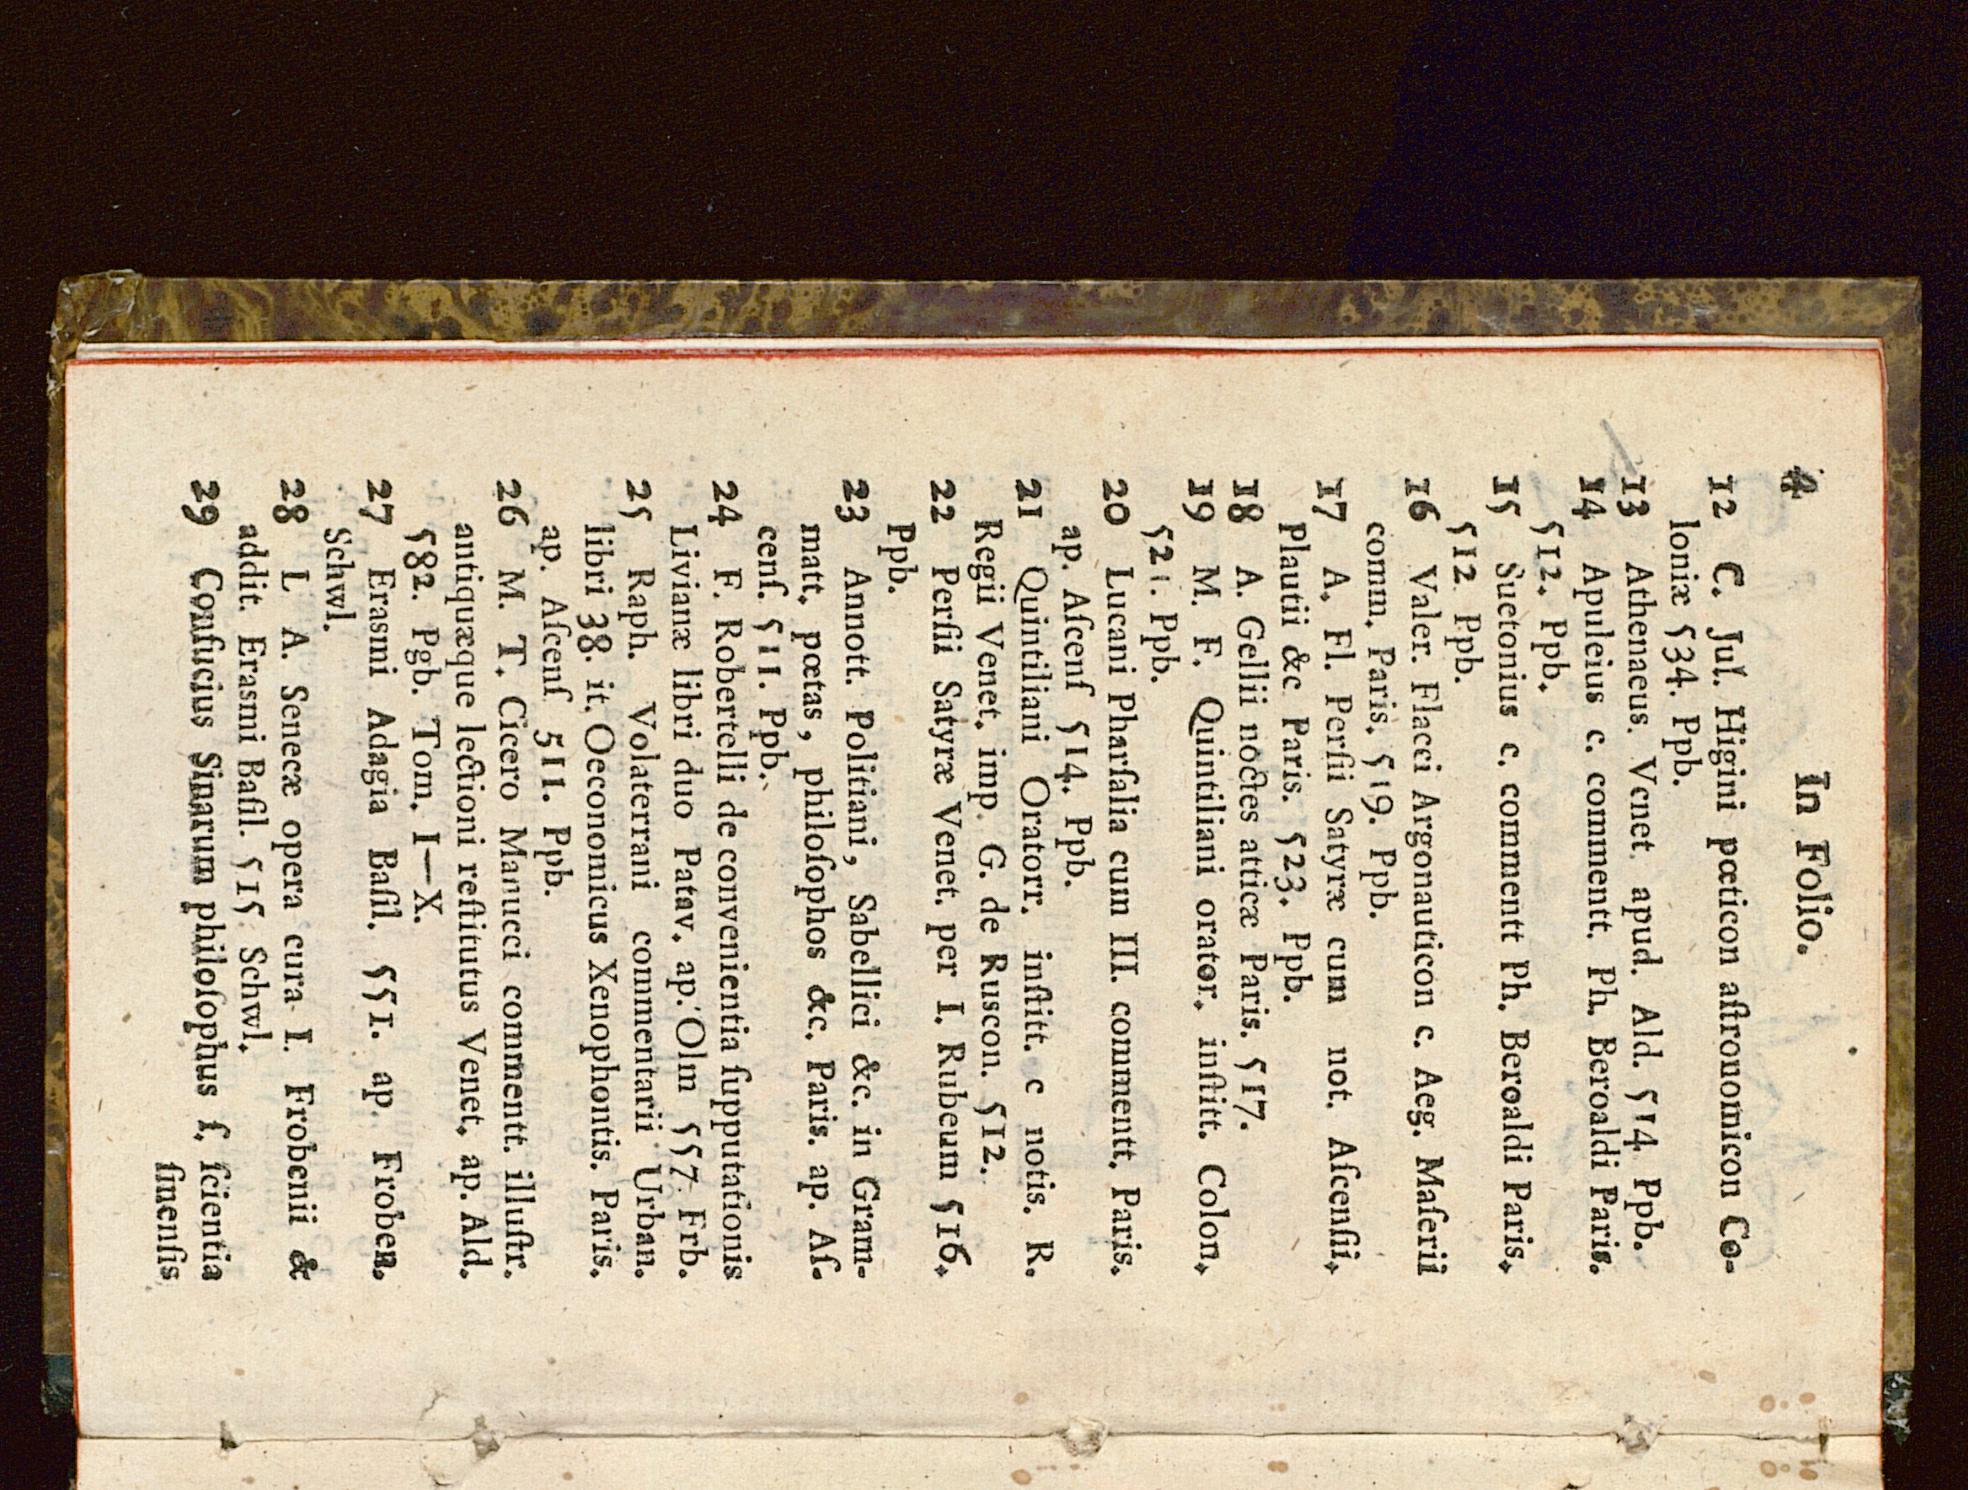 4 In Folio.
12 C. Jul. Higini pœticon aſtronomicon Co-
loniæ 534. Ppb.
13 Athenaeus. Venet. apud. Ald. 514 Ppb.
14 Apuleius c. commentt. Ph. Beroaldi Paris.
512. Ppb.
15 Suetonius c. commentt Ph. Beroaldi Paris.
512 Ppb.
16 Valer. Flacci Argonauticon c. Aeg. Maſerii
comm. Paris. 519. Ppb.
17 A. Fl. Perſii Satyræ cum not. Aſcenſii.
Plautii &c Paris. 523. Ppb.
18 A. Gellii noctes atticæ Paris. 517.
19 M. F. Quintiliani orator. inſtitt. Colon.
521. Ppb.
20 Lucani Pharſalia cum III. commentt. Paris.
ap. Aſcenſ 514. Ppb.
21 Quintiliani Oratorr. inſtitt. c notis. R.
Regii Venet. imp. G. de Ruscon. 512.
22 Perſii Satyræ Venet. per I. Rubeum 516.
Ppb.
23 Annott. Politiani, Sabellici &c. in Gram-
matt. pœtas, philoſophos &c. Paris. ap. Aſ-
cenſ. 511. Ppb.
24 F. Robertelli de convenientia ſupputationis
Livianæ libri duo Patav. ap. Olm 557 Frb.
25 Raph. Volaterrani commentarii Urban.
libri 38. it. Oeconomicus Xenophontis. Paris.
ap. Aſcenſ 511. Ppb.
26 M. T. Cicero Manucci commentt. illuſtr.
antiquæque lectioni reſtitutus Venet. ap. Ald.
582. Pgb. Tom. I—X.
27 Erasmi Adagia Baſil. 551. ap. Froben.
Schwl.
28 L A. Senecæ opera cura I. Frobenii &
addit. Erasmi Baſil. 515 Schwl.
29 Confucius Sinarum philoſophus ſ. ſcientia
ſinenſis